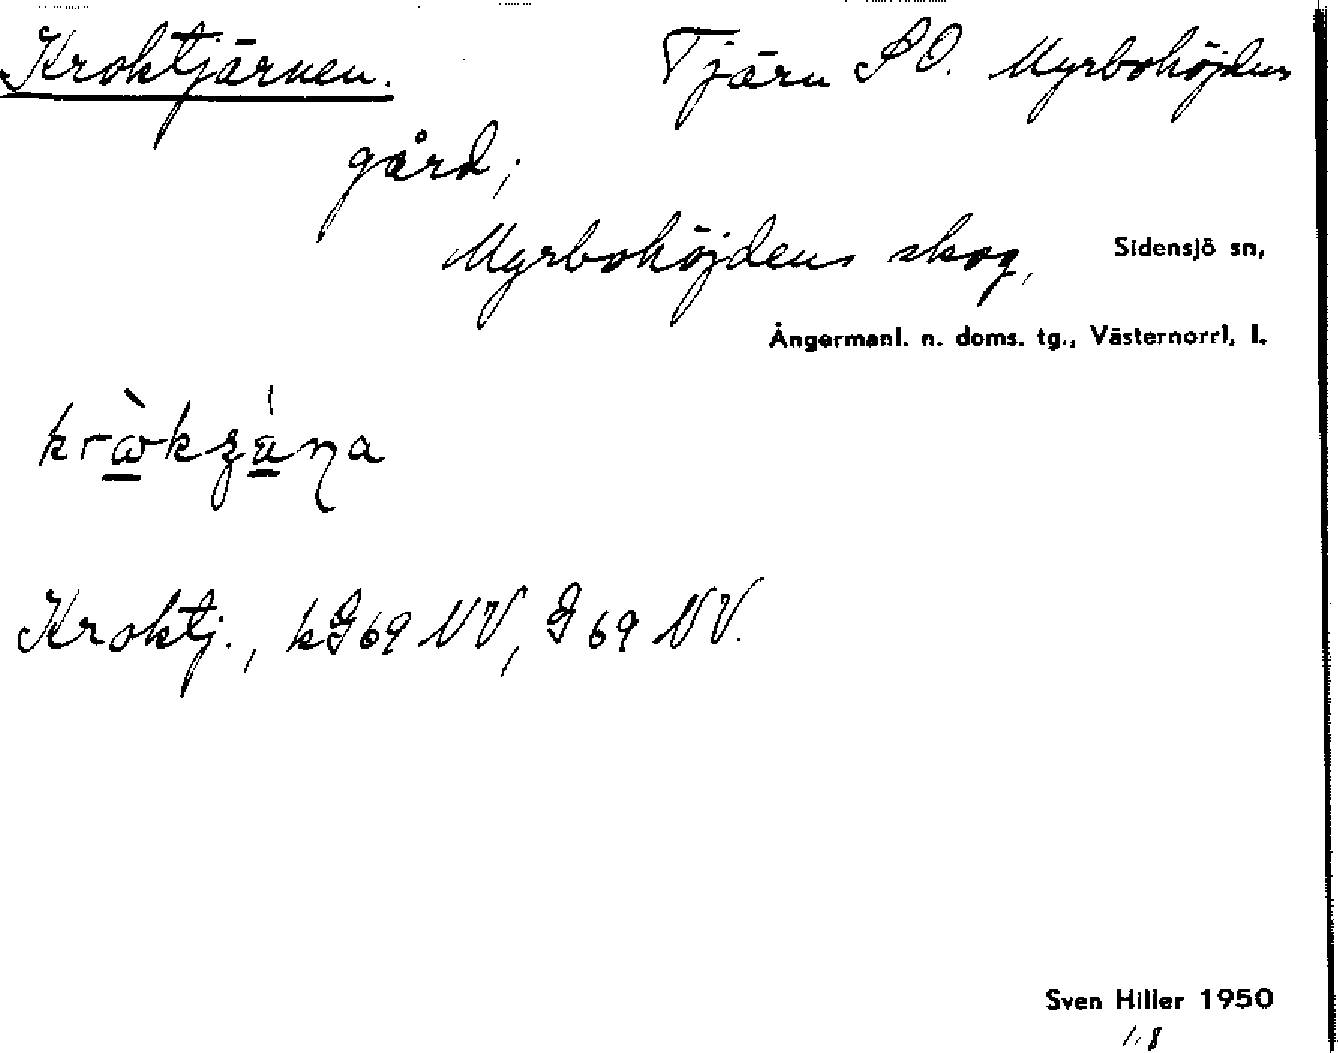 Kroktjärnen. Tjärn SO. Myrbohöjdens
gård;
Myrbohöjdens skog, Sidensjö sn,
Ångermanl. n. doms. tg., Västernorrl, l.
Kroktj., kG69 NV, G 69 NV.
Sven Hiller 1950